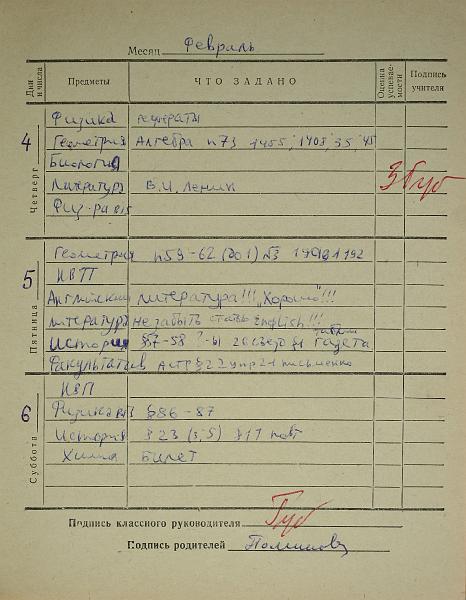 Месяц Февраль
Дни и числа Предметы ЧТО ЗАДАНО Оценка успеваемости Подпись учителя
4 Четверг
Физика рефераты
Геометрия Алгебра п73 1455; 1403; 35; 45
Биология
Литература В.И. Ленин 3 Губ
Физ-ра
5 Пятница
Геометрия п59-62 №3
НВП
Английский литература!!! "Хорошо"!!!
литература не забыть English!!!
История §57-58 газета
Факультатив письменно
6 Суббота
НВП
Физика §86-87
История §23 §17
Химия Билет
Подпись классного руководителя Губ
Подпись родителей